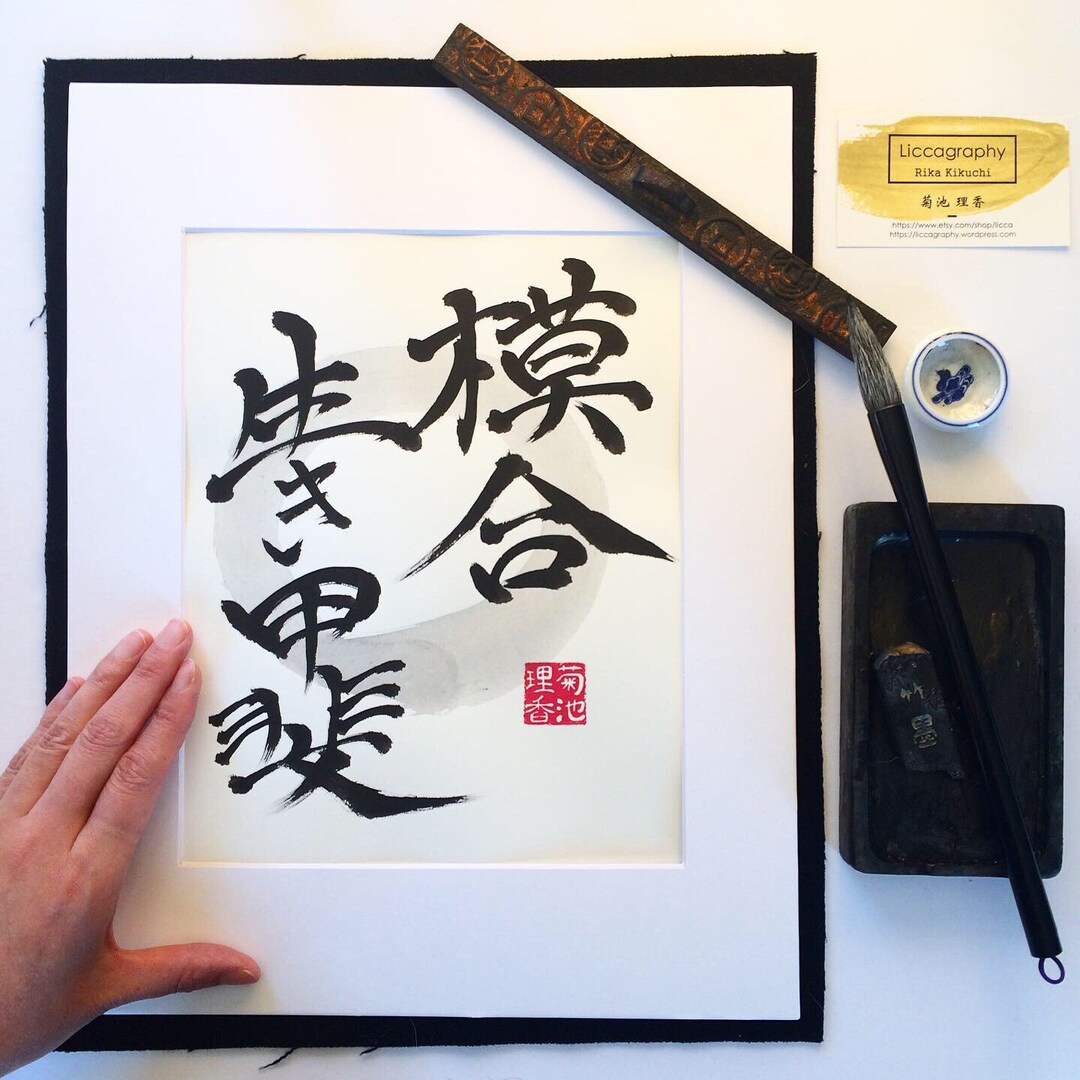 模合
生き甲斐
菊池
理香
Liccagraphy
Rika Kikuchi
菊池 理香
https://www.etsy.com/shop/licca
https://liccagraphy.wordpress.com
竹墨